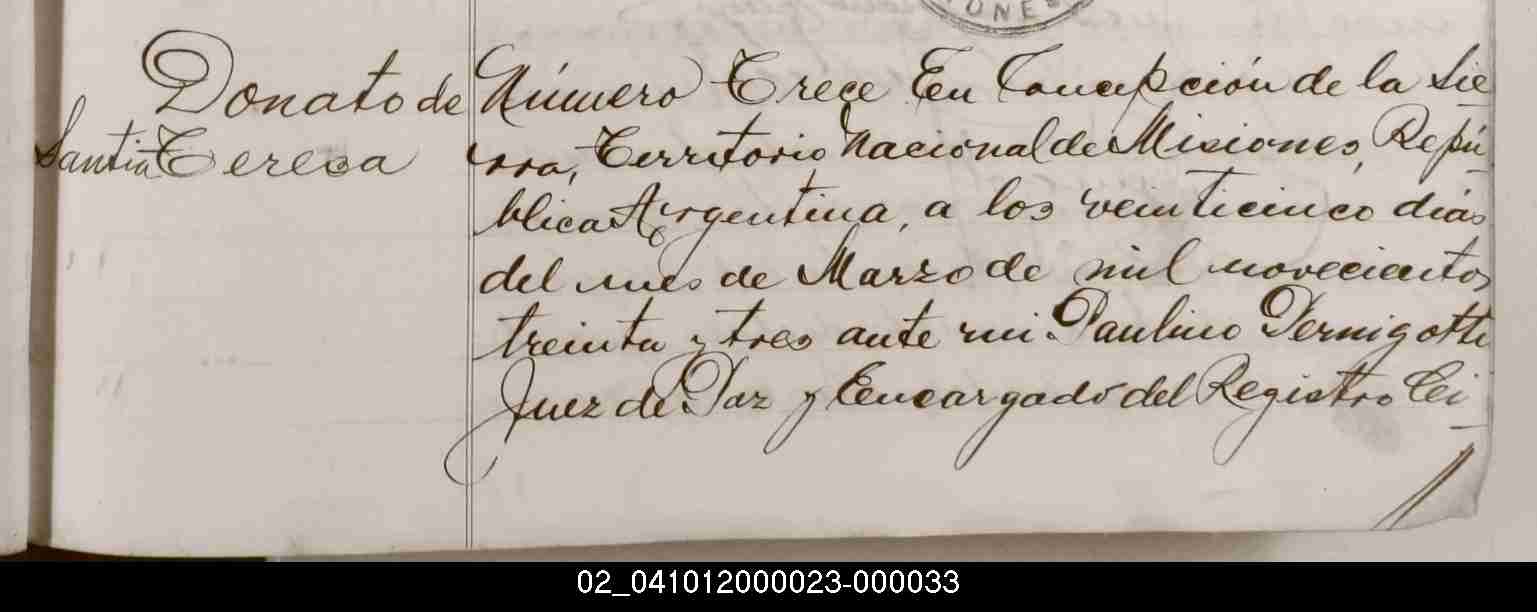 ONES
Donato de
Santia Teresa
Número Trece En Concepción de la Sie
rra, Territorio Nacional de Misiones, Repú
blica Argentina, a los veinticinco dias
del mes de Marzo de mil novecientos
treinta y tres ante mi Paulino Pernigotti
Juez de Paz y Encargado del Registro Ci
02_041012000023-000033